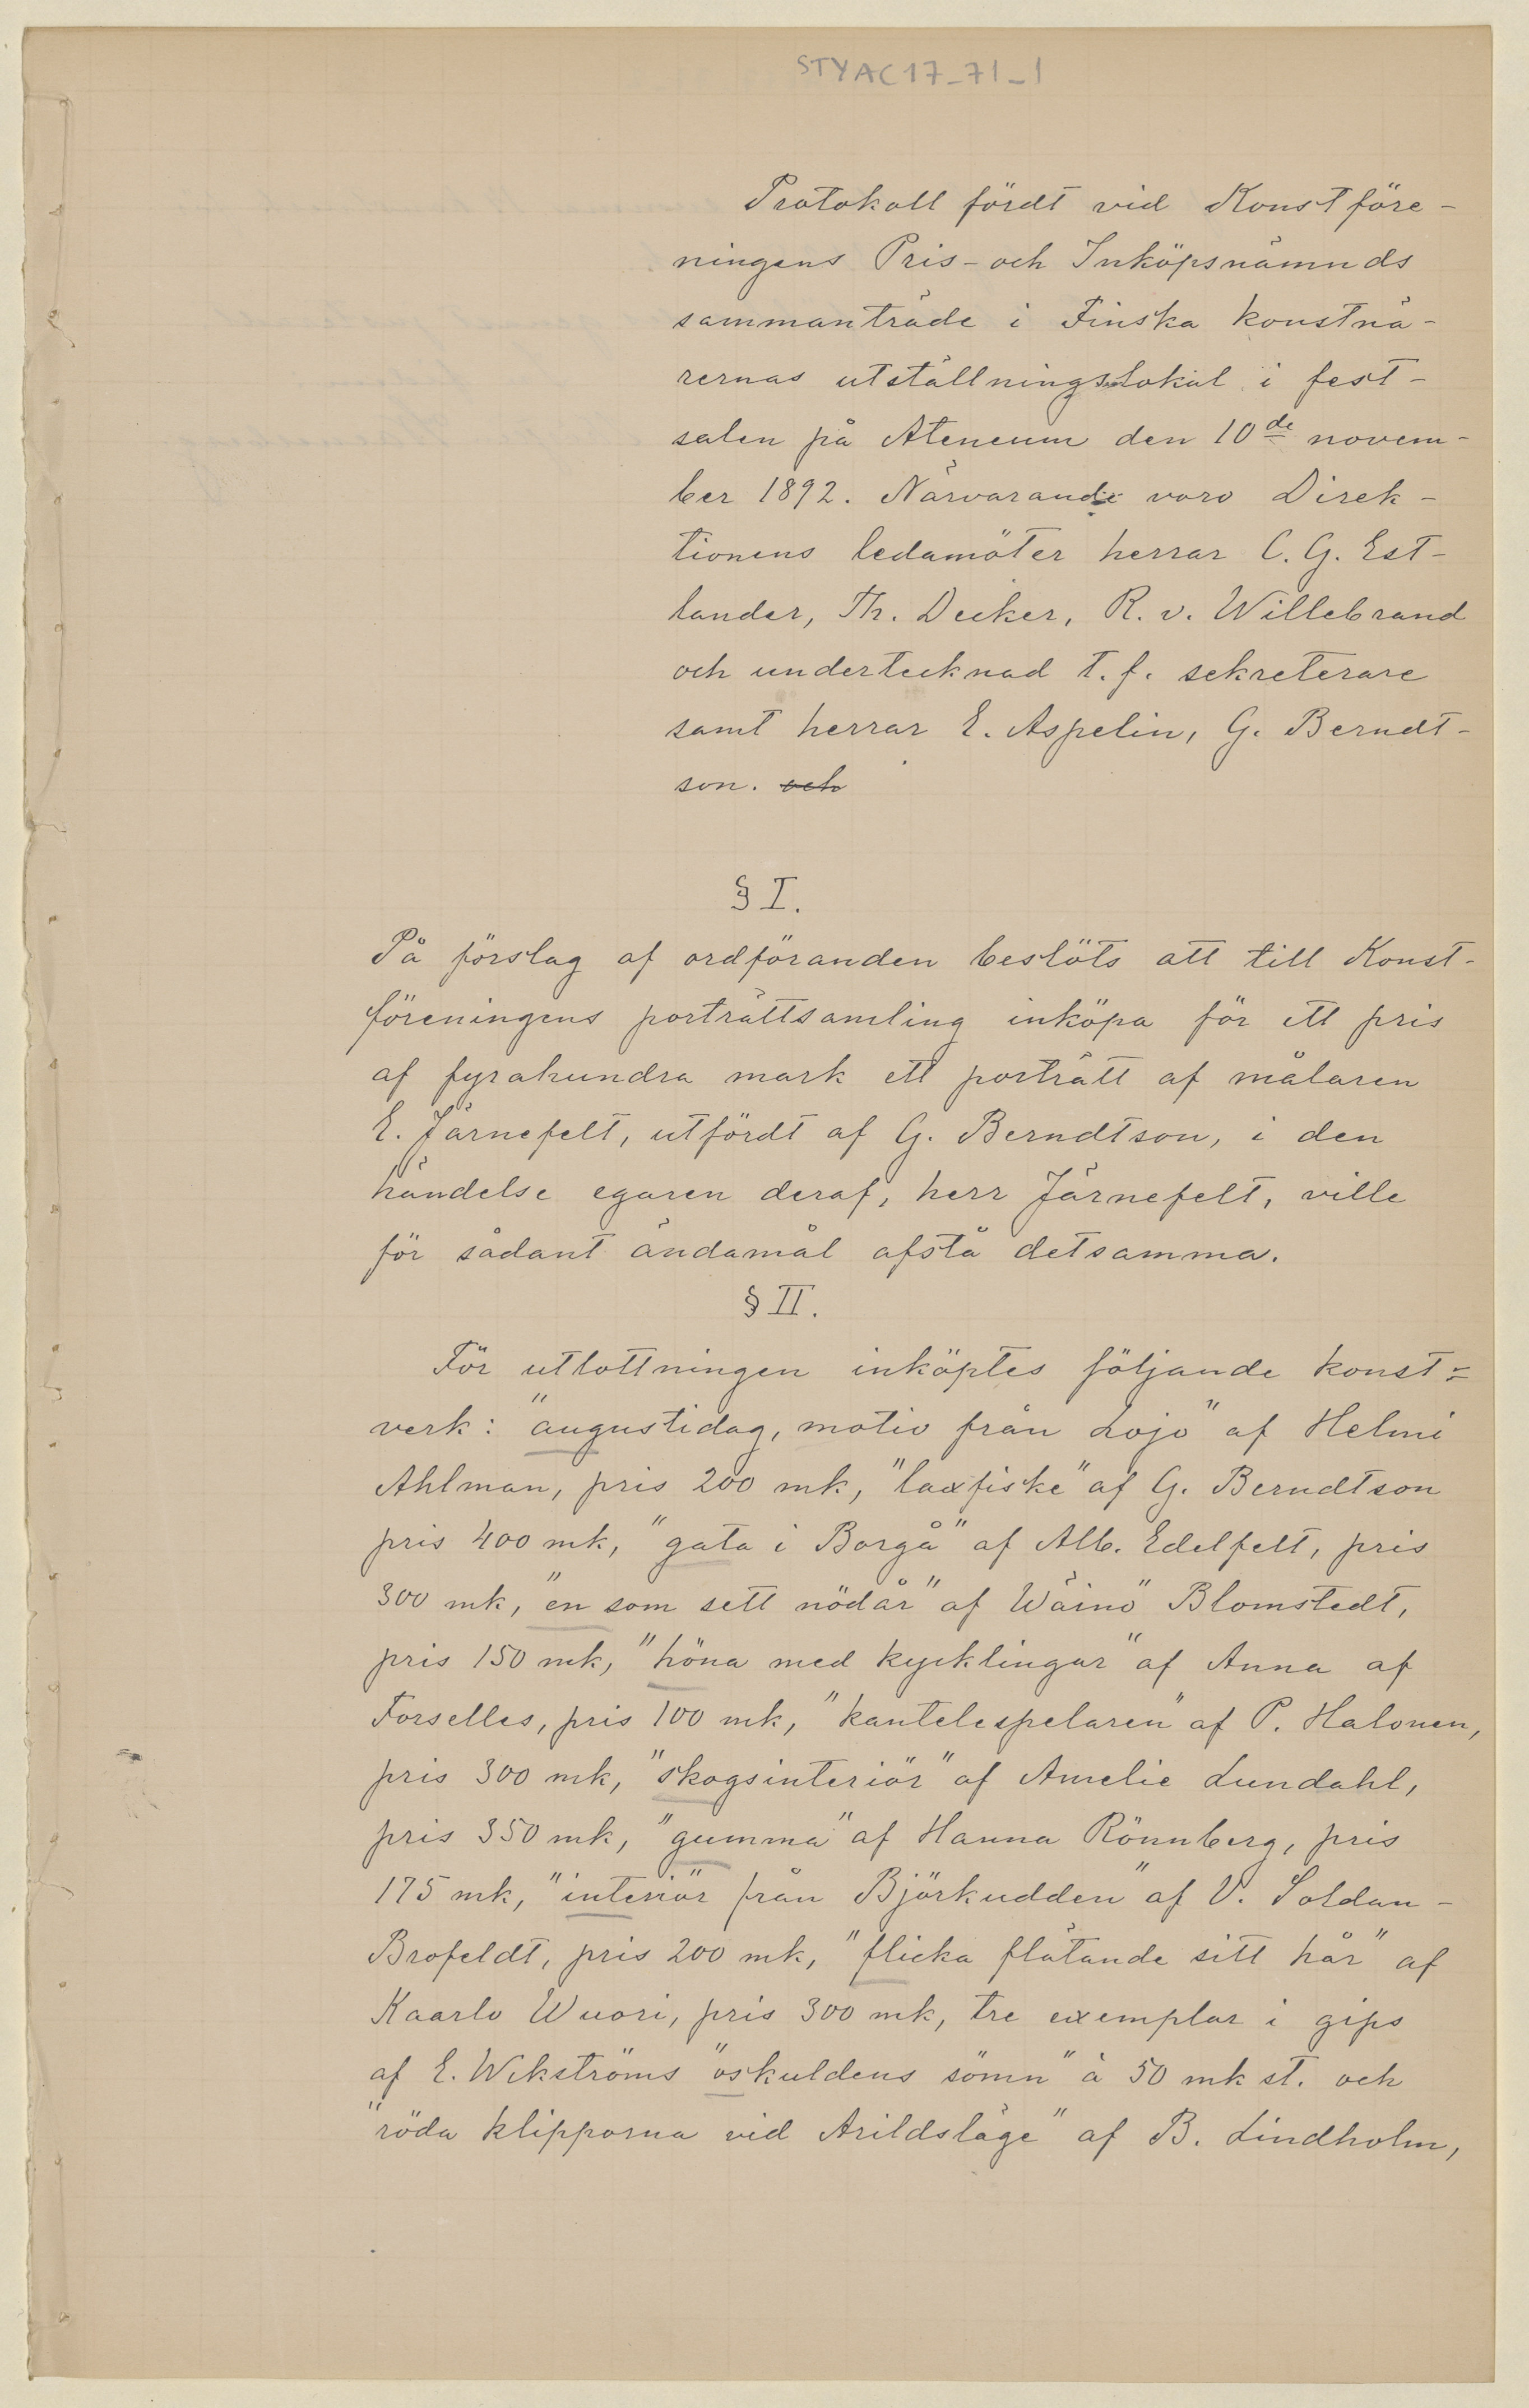 STYAC17_71_1
Protokoll fördt vid Konstföre-
ningens Pris- och Inköpsnämnds
sammanträde i Finska konstnä-
rernas utställningslokal i fest-
salen på Ateneum den 10de novem-
ber 1892. Närvarande voro Direk-
tionens ledamöter herrar C. G. Est-
lander, Th. Decker, R. v. Willebrand
och undertecknad t. f. sekreterare
samt herrar E. Aspelin, G. Berndt-
son. och
§ I.
På förslag af ordföranden beslöts att till Konst-
föreningens porträttsamling inköpa för ett pris
af fyrahundra mark ett porträtt af målaren
E. Järnefelt, utfördt af G. Berndtson, i den
händelse egaren deraf, herr Järnefelt, ville
för sådant ändamål afstå detsamma.
§ II.
För utlottningen inköptes följande konst=
verk: "augustidag, motiv från Lojo" af Helmi
Ahlman, pris 200 mk, "laxfiske" af G. Berndtson
pris 400 mk, "gata i Borgå" af Alb. Edelfelt, pris
300 mk, "en som sett nödår" af Wäinö Blomstedt,
pris 150 mk, "höna med kycklingar" af Anna af
Forselles, pris 100 mk, "kantelespelaren" af P. Halonen,
pris 300 mk, "skogsinteriör" af Amelie Lundahl,
pris 350 mk, "gumma" af Hanna Rönnberg, pris
175 mk, "interiör från Björkudden" af V. Soldan-
Brofeldt, pris 200 mk, "flicka flätande sitt hår" af
Kaarlo Wuori, pris 300 mk, tre exemplar i gips
af E. Wikströms "oskuldens sömn" à 50 mk st. och
"röda klipporna vid Arildsläge" af B. Lindholm,